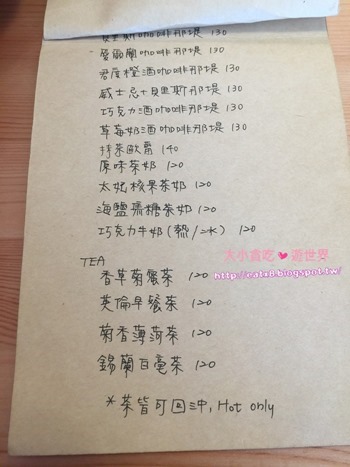 貝里斯咖啡那堤 130
- 愛爾蘭咖啡那堤 130
君度橙酒咖啡那堤 130
威士忌+貝里斯那堤 130
巧克力酒咖啡那堤 130
草莓奶酒咖啡那堤 130
抹茶歐蕾 140
原味茶奶 120
太妃核果茶奶 120
海鹽焦糖茶奶 120
巧克力牛奶(熱/冰) 120
大小貪吃♥遊世界
http://eatx8.blogspot.tw/
TEA
香草菊蜜茶 120
英倫早餐茶 120
菊香薄荷茶 120
錫蘭白毫茶 120
*茶皆可回沖, Hot only